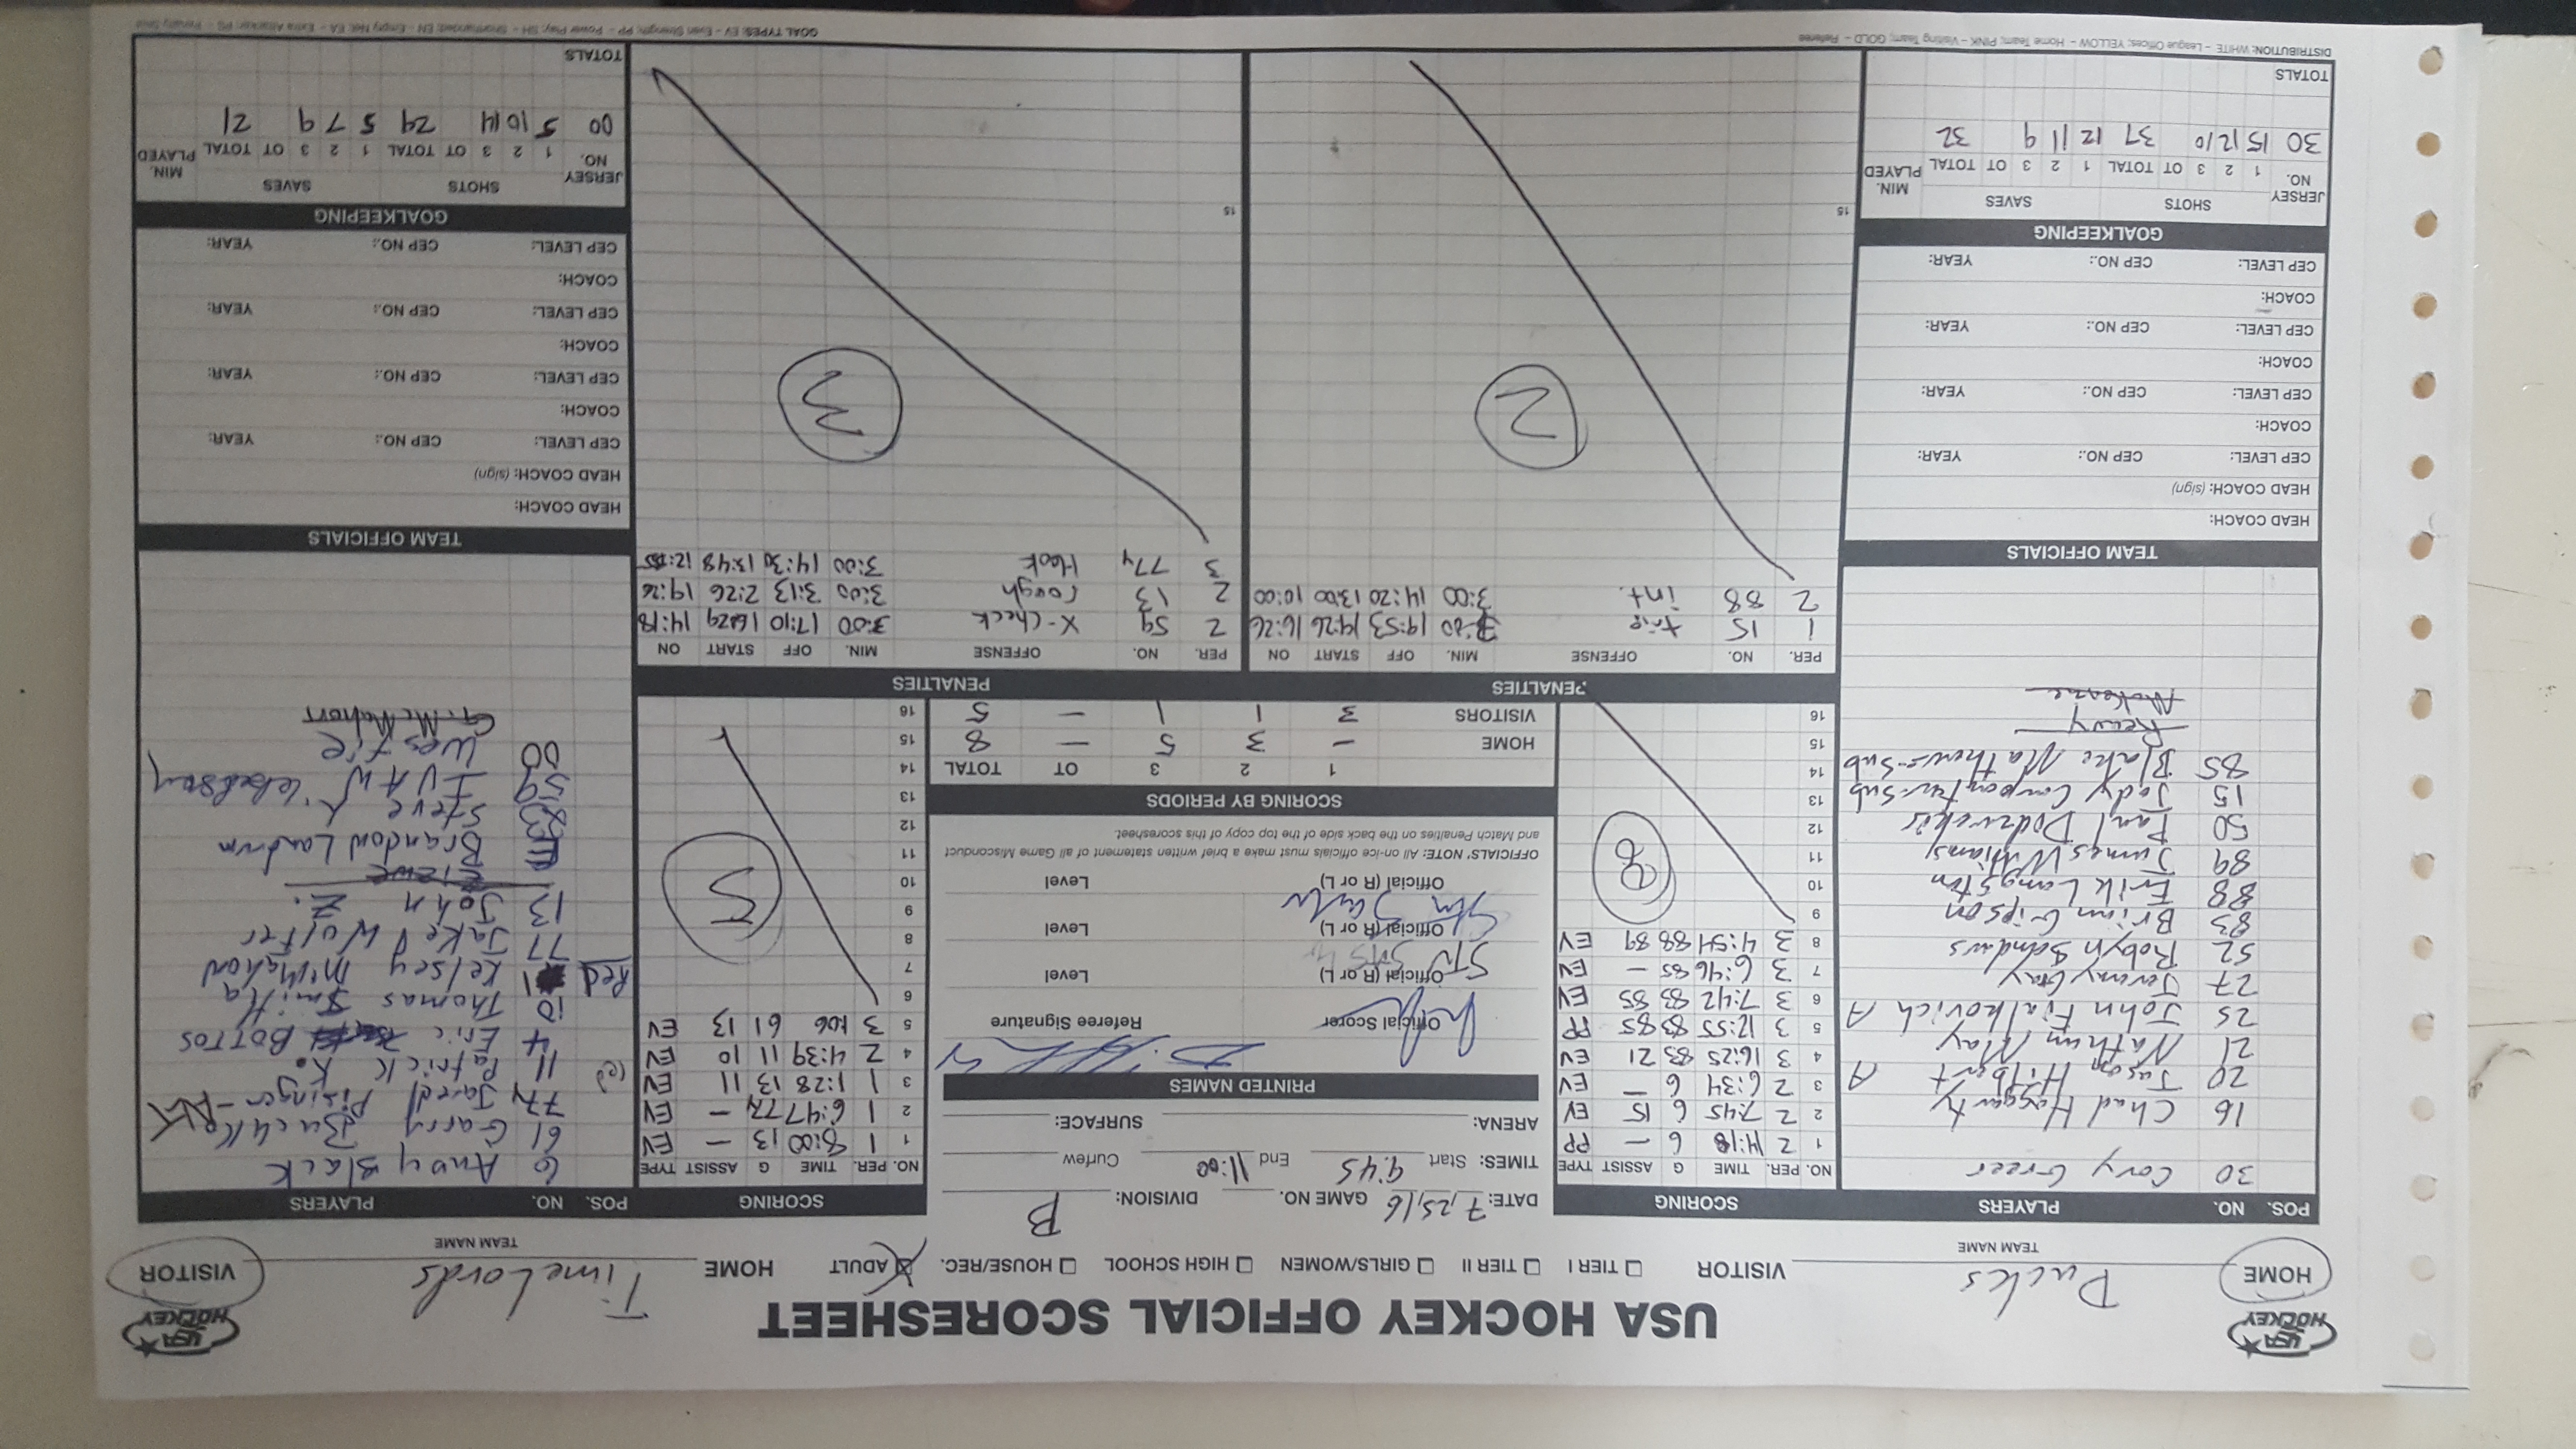 USA HOCKEY OFFICIAL SCORESHEET
USA HOCKEY
USA HOCKEY
HOME Pucks VISITOR
TEAM NAME
☐ TIER I ☐ TIER II ☐ GIRLS/WOMEN ☐ HIGH SCHOOL ☐ HOUSE/REC. ☒ ADULT
HOME Time Lords VISITOR
TEAM NAME
POS. NO. PLAYERS
30 Cory Greer
16 Chad Haggarty
20 Jason Hilbert A
21 Nathan May
25 John Fialkovich A
27 Jeremy Gay
52 Robyn Sandus
83 Brian Gipson
88 Erik Langston
89 James Williams
50 Paul
15 Jody Carpenter-Sub
85 Blake Mathews-Sub
SCORING
NO. PER. TIME G ASSIST TYPE
1 2 14:18 6 — PP
2 2 7:45 6 15 EV
3 2 6:34 6 — EV
4 3 16:25 83 21 EV
5 3 12:55 83 85 PP
6 3 7:42 83 85 EV
7 3 6:46 85 — EV
8 3 4:54 88 89 EV
9
10
11
12
13
14
15
16
8
DATE: 7,25,16 GAME NO. DIVISION: B
TIMES: Start 9:45 End 11:00 Curfew
ARENA: SURFACE:
PRINTED NAMES
Official Scorer Referee Signature
Official (R or L) Level
Official (R or L) Level
Official (R or L) Level
OFFICIALS' NOTE: All on-ice officials must make a brief written statement of all Game Misconduct
and Match Penalties on the back side of the top copy of this scoresheet.
SCORING BY PERIODS
1 2 3 OT TOTAL
HOME — 3 5 — 8
VISITORS 3 1 1 — 5
SCORING
NO. PER. TIME G ASSIST TYPE
1 1 8:00 13 — EV
2 1 6:47 77y — EV
3 1 1:28 13 11 EV
4 2 4:39 11 10 EV
5 3 1:06 61 13 EV
6
7
8
9
10
11
12
13
14
15
16
5
POS. NO. PLAYERS
6 Andy Black
61 Garry
77y Jared Pisinger-Alt
(c) 11 Patrick K.
4 Eric Bottos
10 Thomas Smith
Red 1 Kelsey McMahon
77 Jake Wolter
13 John Z.
Brandon Landrum
Steve K
59 IVAN
00 Westie
G. McMahon
PENALTIES
PER. NO. OFFENSE MIN. OFF START ON
1 15 trip 3:00 19:53 19:26 16:26
2 88 int. 3:00 14:20 13:00 10:00
2
15
PENALTIES
PER. NO. OFFENSE MIN. OFF START ON
2 59 X-check 3:00 17:10 16:29 14:18
2 13 rough 3:00 3:13 2:26 19:26
3 77y Hook 3:00 14:30 13:48 12:55
3
15
TEAM OFFICIALS
HEAD COACH:
HEAD COACH: (sign)
CEP LEVEL: CEP NO.: YEAR:
COACH:
CEP LEVEL: CEP NO.: YEAR:
COACH:
CEP LEVEL: CEP NO.: YEAR:
COACH:
CEP LEVEL: CEP NO.: YEAR:
GOALKEEPING
JERSEY NO. SHOTS SAVES MIN. PLAYED
1 2 3 OT TOTAL 1 2 3 OT TOTAL
30 15 12 10 37 12 11 9 32
TOTALS
TEAM OFFICIALS
HEAD COACH:
HEAD COACH: (sign)
CEP LEVEL: CEP NO.: YEAR:
COACH:
CEP LEVEL: CEP NO.: YEAR:
COACH:
CEP LEVEL: CEP NO.: YEAR:
COACH:
CEP LEVEL: CEP NO.: YEAR:
GOALKEEPING
JERSEY NO. SHOTS SAVES MIN. PLAYED
1 2 3 OT TOTAL 1 2 3 OT TOTAL
00 5 10 14 29 5 7 9 21
TOTALS
DISTRIBUTION: WHITE – League Offices; YELLOW – Home Team; PINK – Visiting Team; GOLD – Referee
GOAL TYPES: EV – Even Strength; PP – Power Play; SH – Shorthanded; EN – Empty Net; EA – Extra Attacker; PS – Penalty Shot